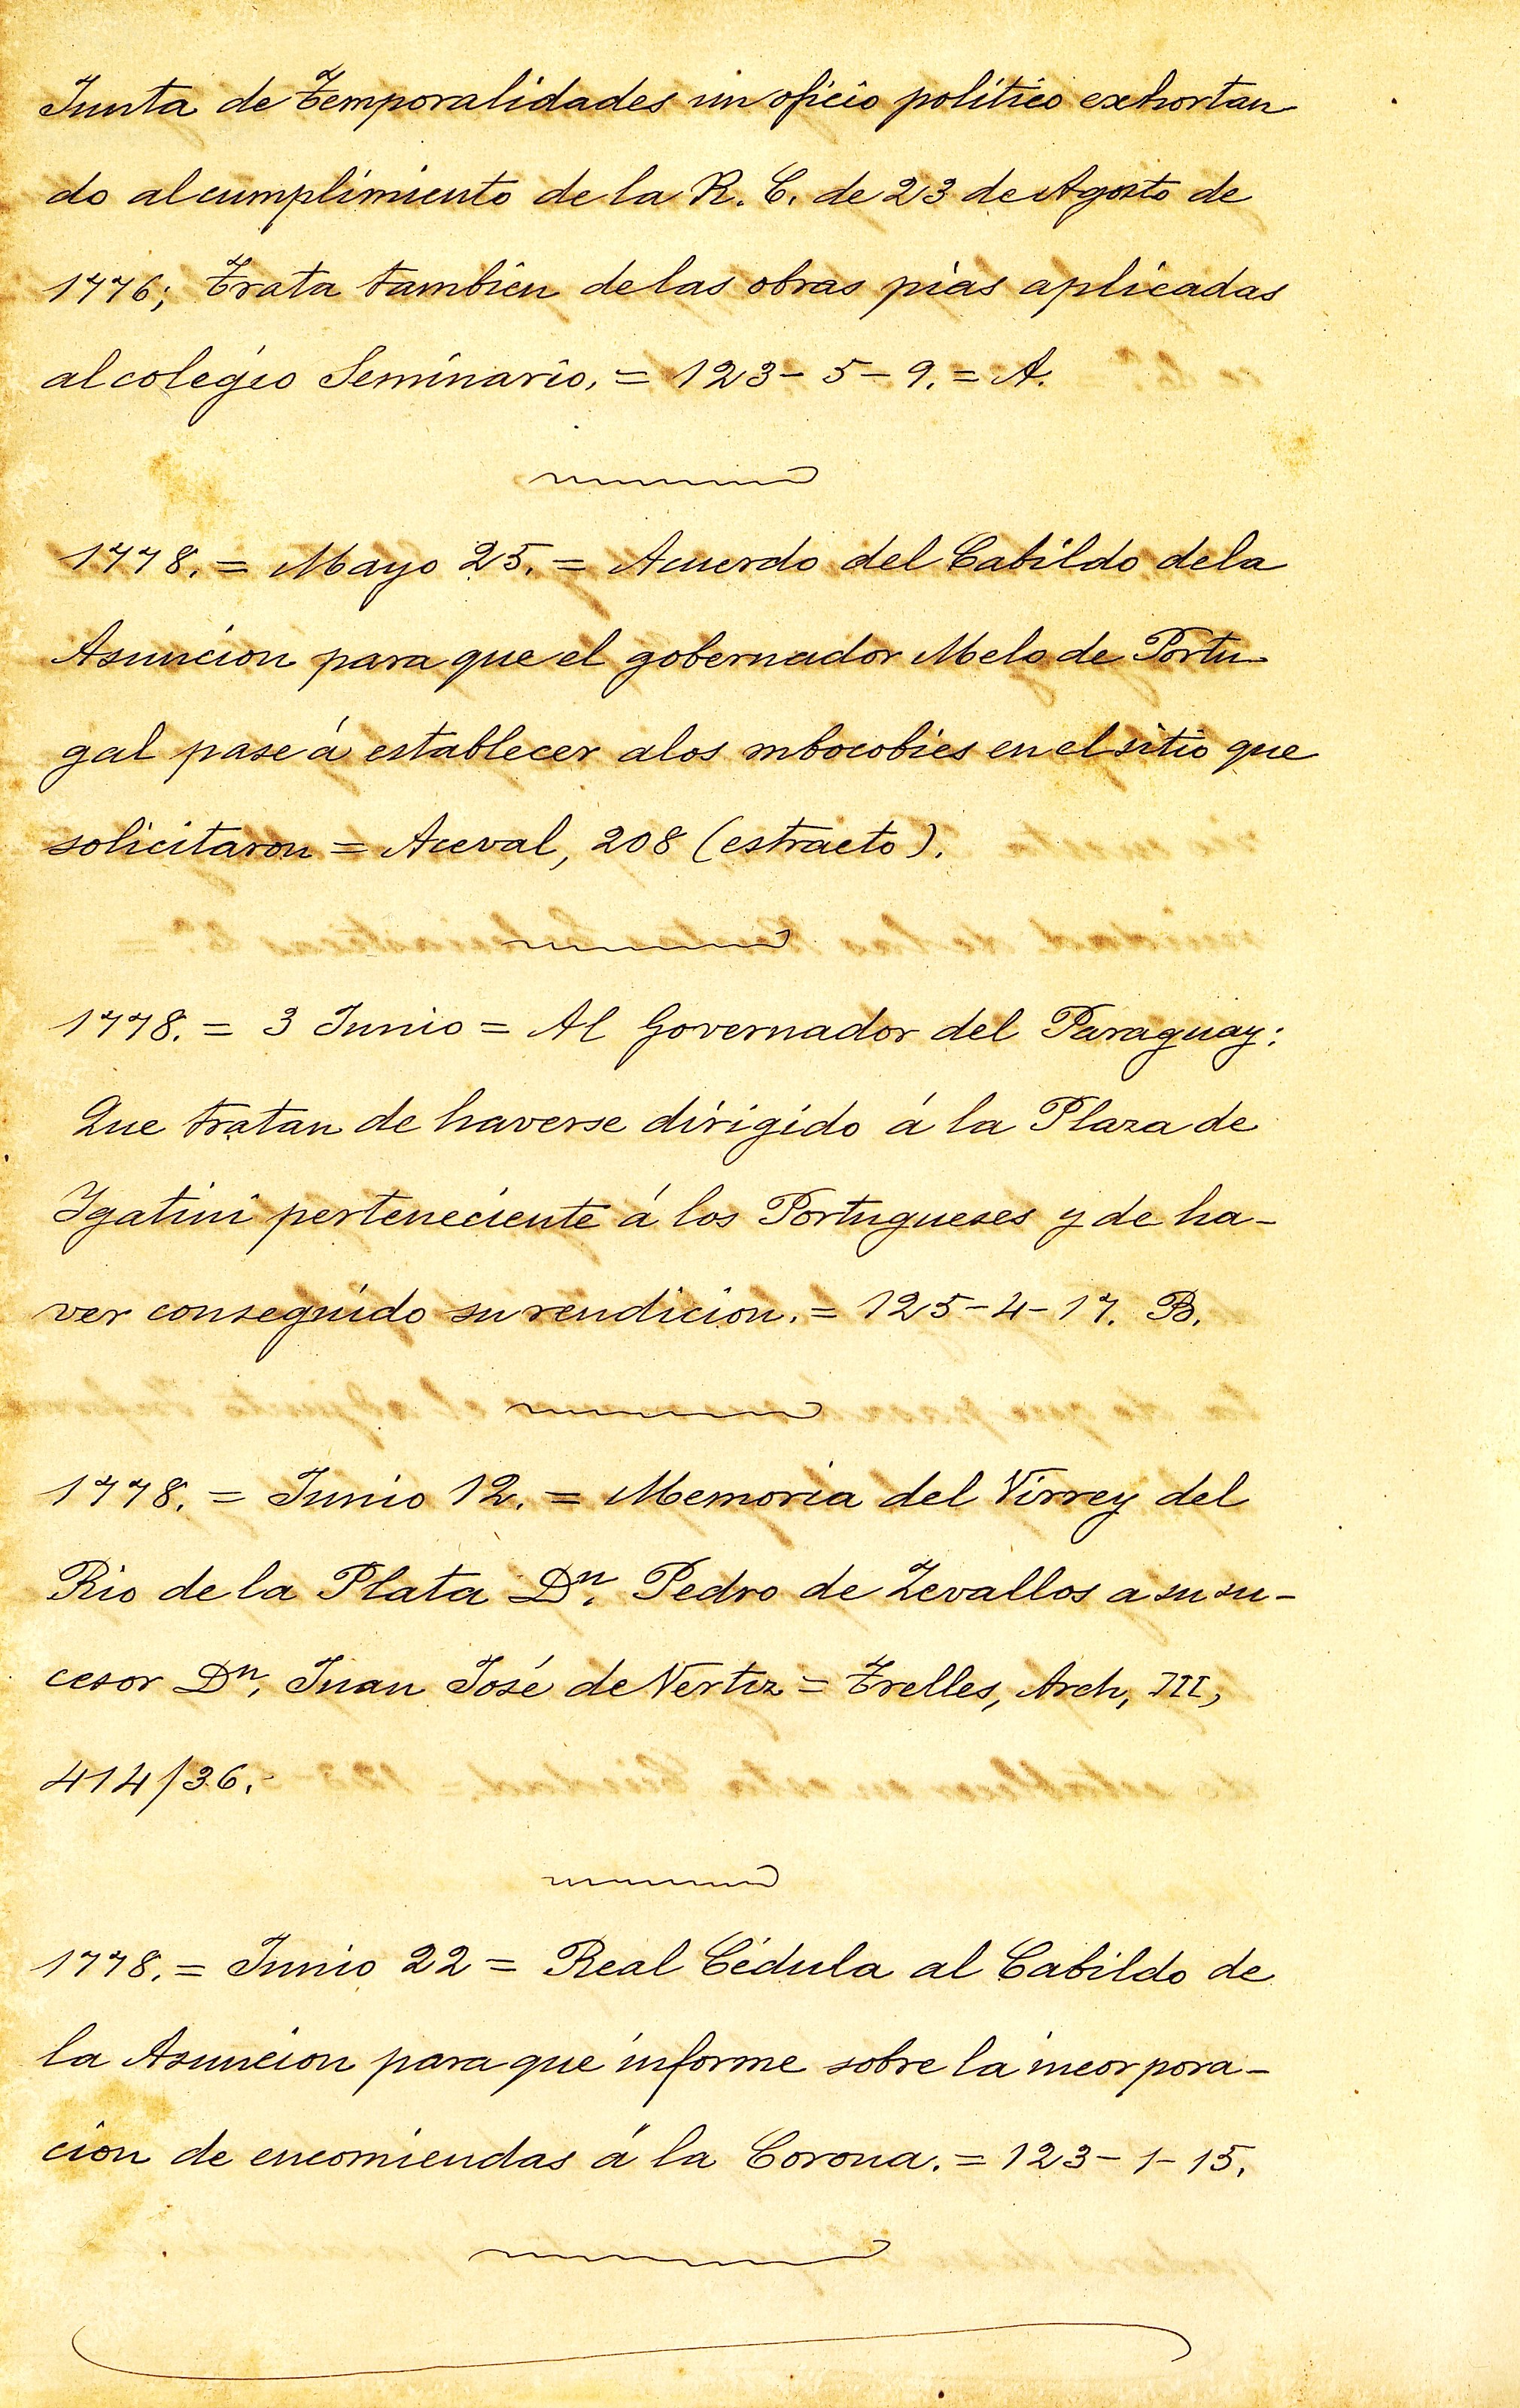 Junta de Temporalidades un oficio politico exhortan
do al cumplimiento de la R. C. de 23 de Agosto de
1776; Trata tambien de las obras pias aplicadas
al colegio Seminario. = 123 - 5 - 9. = A.
1778. = Mayo 25. = Acuerdo del Cabildo de la
Asuncion para que el gobernador Melo de Portu-
gal pase á establecer a los mbocobies en el sitio que
solicitaron = Aceval, 208 (estracto).
1778. = 3 Junio = Al Governador del Paraguay:
Que tratan de haverse dirigido á la Plaza de
Igatimi perteneciente á los Portugueses y de ha-
ver conseguido su rendicion. = 125 - 4 - 17. B.
1778. = Junio 12. = Memoria del Virrey del
Rio de la Plata Dn. Pedro de Zevallos a su su-
cesor Dn. Juan José de Vertiz = Trelles, Arch, III,
414/36.
1778. = Junio 22 = Real Cédula al Cabildo de
la Asuncion para que informe sobre la incorpora-
cion de encomiendas á la Corona. = 123 - 1 - 15.